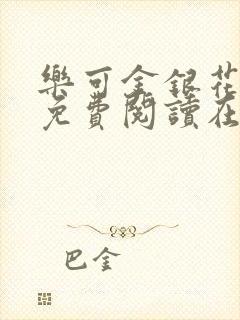 樂可金銀花
免費閱讀在
巴金